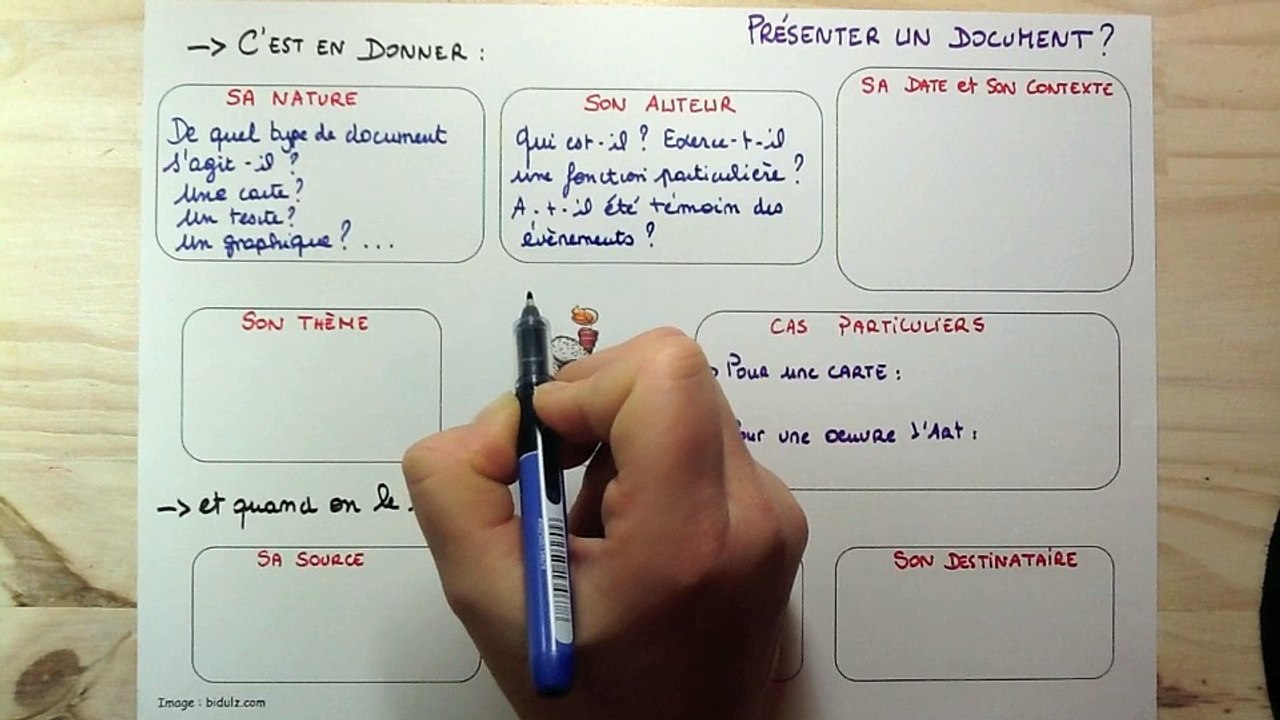 PRÉSENTER UN DOCUMENT ?
-> C'EST EN DONNER :
SA NATURE
De quel type de document
s'agit-il ?
Une carte ?
Un texte ?
Un graphique ? ...
SON AUTEUR
Qui est-il ? Exerce-t-il
une fonction particulière ?
A-t-il été témoin des
évènements ?
SA DATE et SON CONTEXTE
SON THÈME
CAS PARTICULIERS
Pour une CARTE :
Pour une oeuvre d'Art :
-> et quand on le
SA SOURCE
SON DESTINATAIRE
Image : bidulz.com